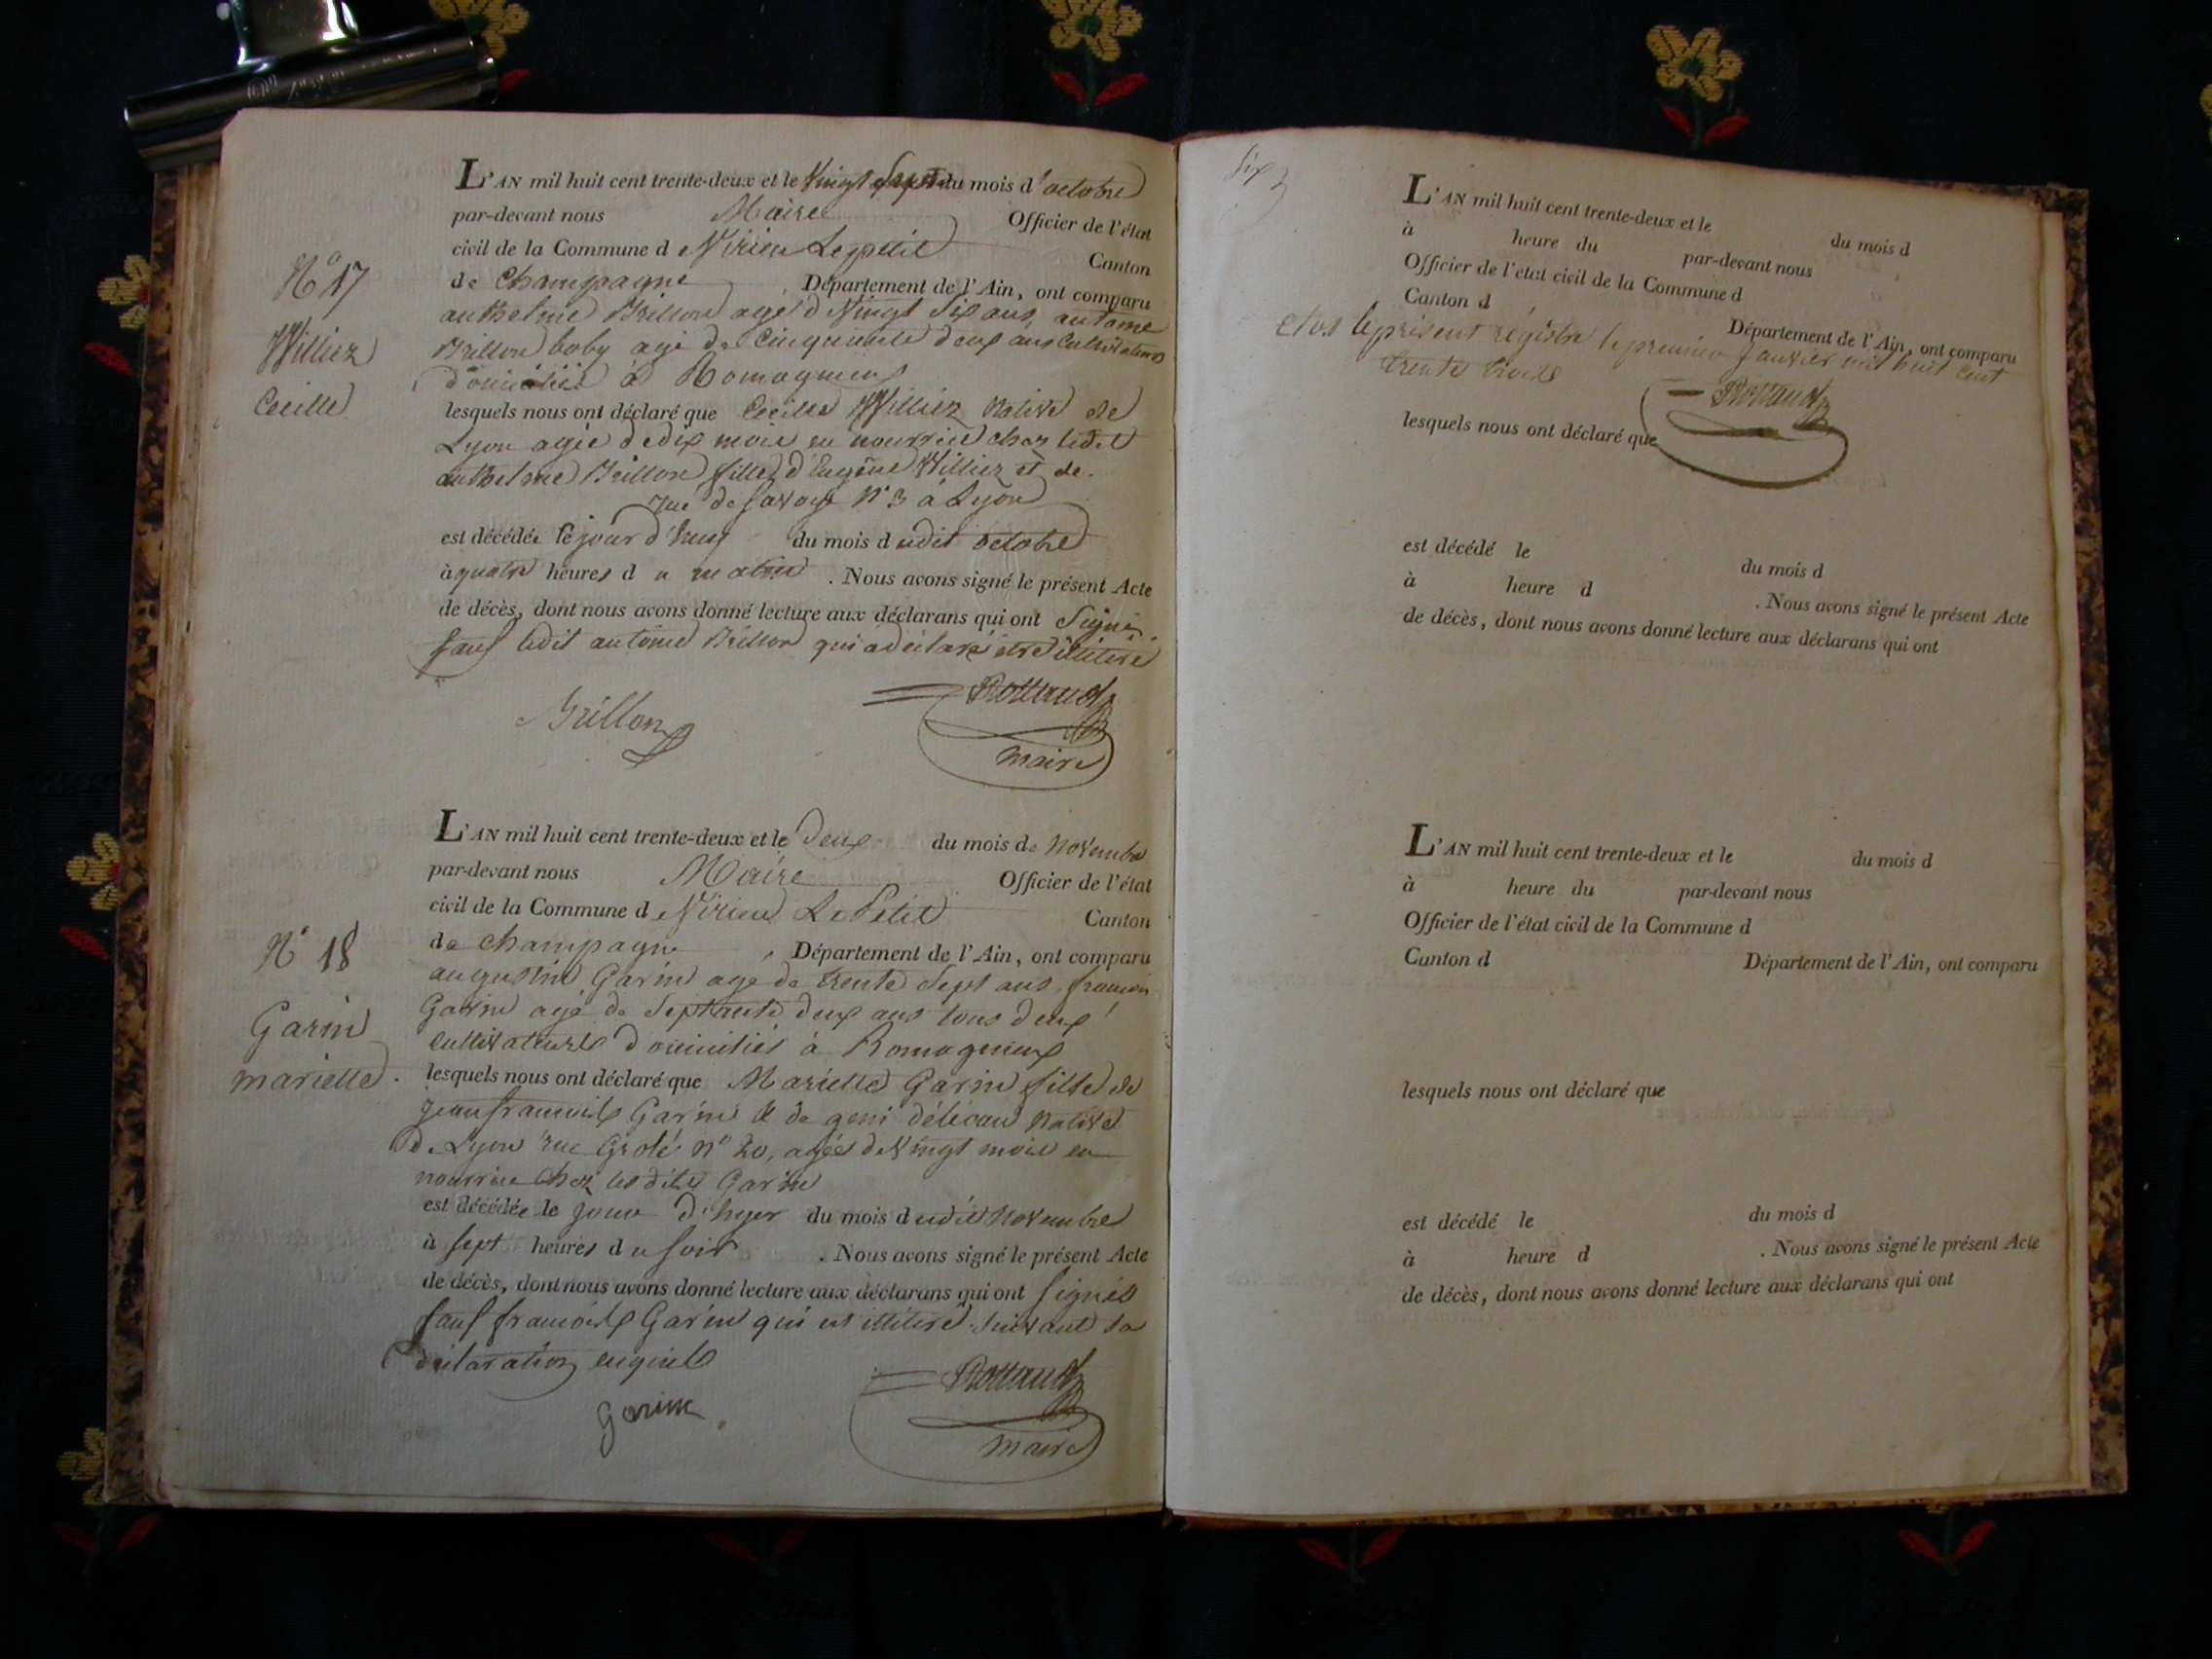 L'AN mil huit cent trente-deux et le vingt sept du mois d'octobre
par-devant nous Maire Officier de l'état
civil de la Commune de Virieu Le petit Canton
de Champagne, Département de l'Ain, ont comparu
anthelme Brillon agé de Vingt Six ans, antoine
Brillon boby agé de Cinquante deux ans Cultivateurs
domiciliés à Romagnieux
N° 17
Williez
Cecille
lesquels nous ont déclaré que Cecille Williez Native de
Lyon agée de dix mois en nourrice chez ledit
anthelme Brillon fille d'Eugène Williez et de
rue de Savoye N° 3 à Lyon
est décédée le jour d'huy du mois dudit octobre
à quatre heures du matin. Nous avons signé le présent Acte
de décès, dont nous avons donné lecture aux déclarans qui ont Signé
Sauf ledit antoine Brillon qui a déclaré être illitéré
Brillon
Rottaud
maire
L'AN mil huit cent trente-deux et le deux du mois de Novembre
par-devant nous Maire Officier de l'état
civil de la Commune de Virieu Le Petit Canton
de Champagne, Département de l'Ain, ont comparu
augustin Garin agé de trente Sept ans, francois
Garin agé de Septante deux ans tous deux
cultivateurs domiciliés à Romagnieux
N° 18
Garin
mariette.
lesquels nous ont déclaré que Mariette Garin fille de
Jean francois Garin & de Native
de Lyon rue Grolé N° 20, agée de Vingt mois en
nourrice chez lesdits Garin
est décédée le jour d'hyer du mois dudit Novembre
à Sept heures du Soir. Nous avons signé le présent Acte
de décès, dont nous avons donné lecture aux déclarans qui ont Signés
Sauf francois Garin qui est illitéré Suivant sa
déclaration enquis
Garin
Rottaud
maire
Six
L'AN mil huit cent trente-deux et le du mois d
à heure du par-devant nous
Officier de l'état civil de la Commune d
Canton d Département de l'Ain, ont comparu
Clos le présent régistre le premier Janvier mil huit cent
trente trois
Rottaud
lesquels nous ont déclaré que
est décédé le du mois d
à heure d . Nous avons signé le présent Acte
de décès, dont nous avons donné lecture aux déclarans qui ont
L'AN mil huit cent trente-deux et le du mois d
à heure du par-devant nous
Officier de l'état civil de la Commune d
Canton d Département de l'Ain, ont comparu
lesquels nous ont déclaré que
est décédé le du mois d
à heure d . Nous avons signé le présent Acte
de décès, dont nous avons donné lecture aux déclarans qui ont